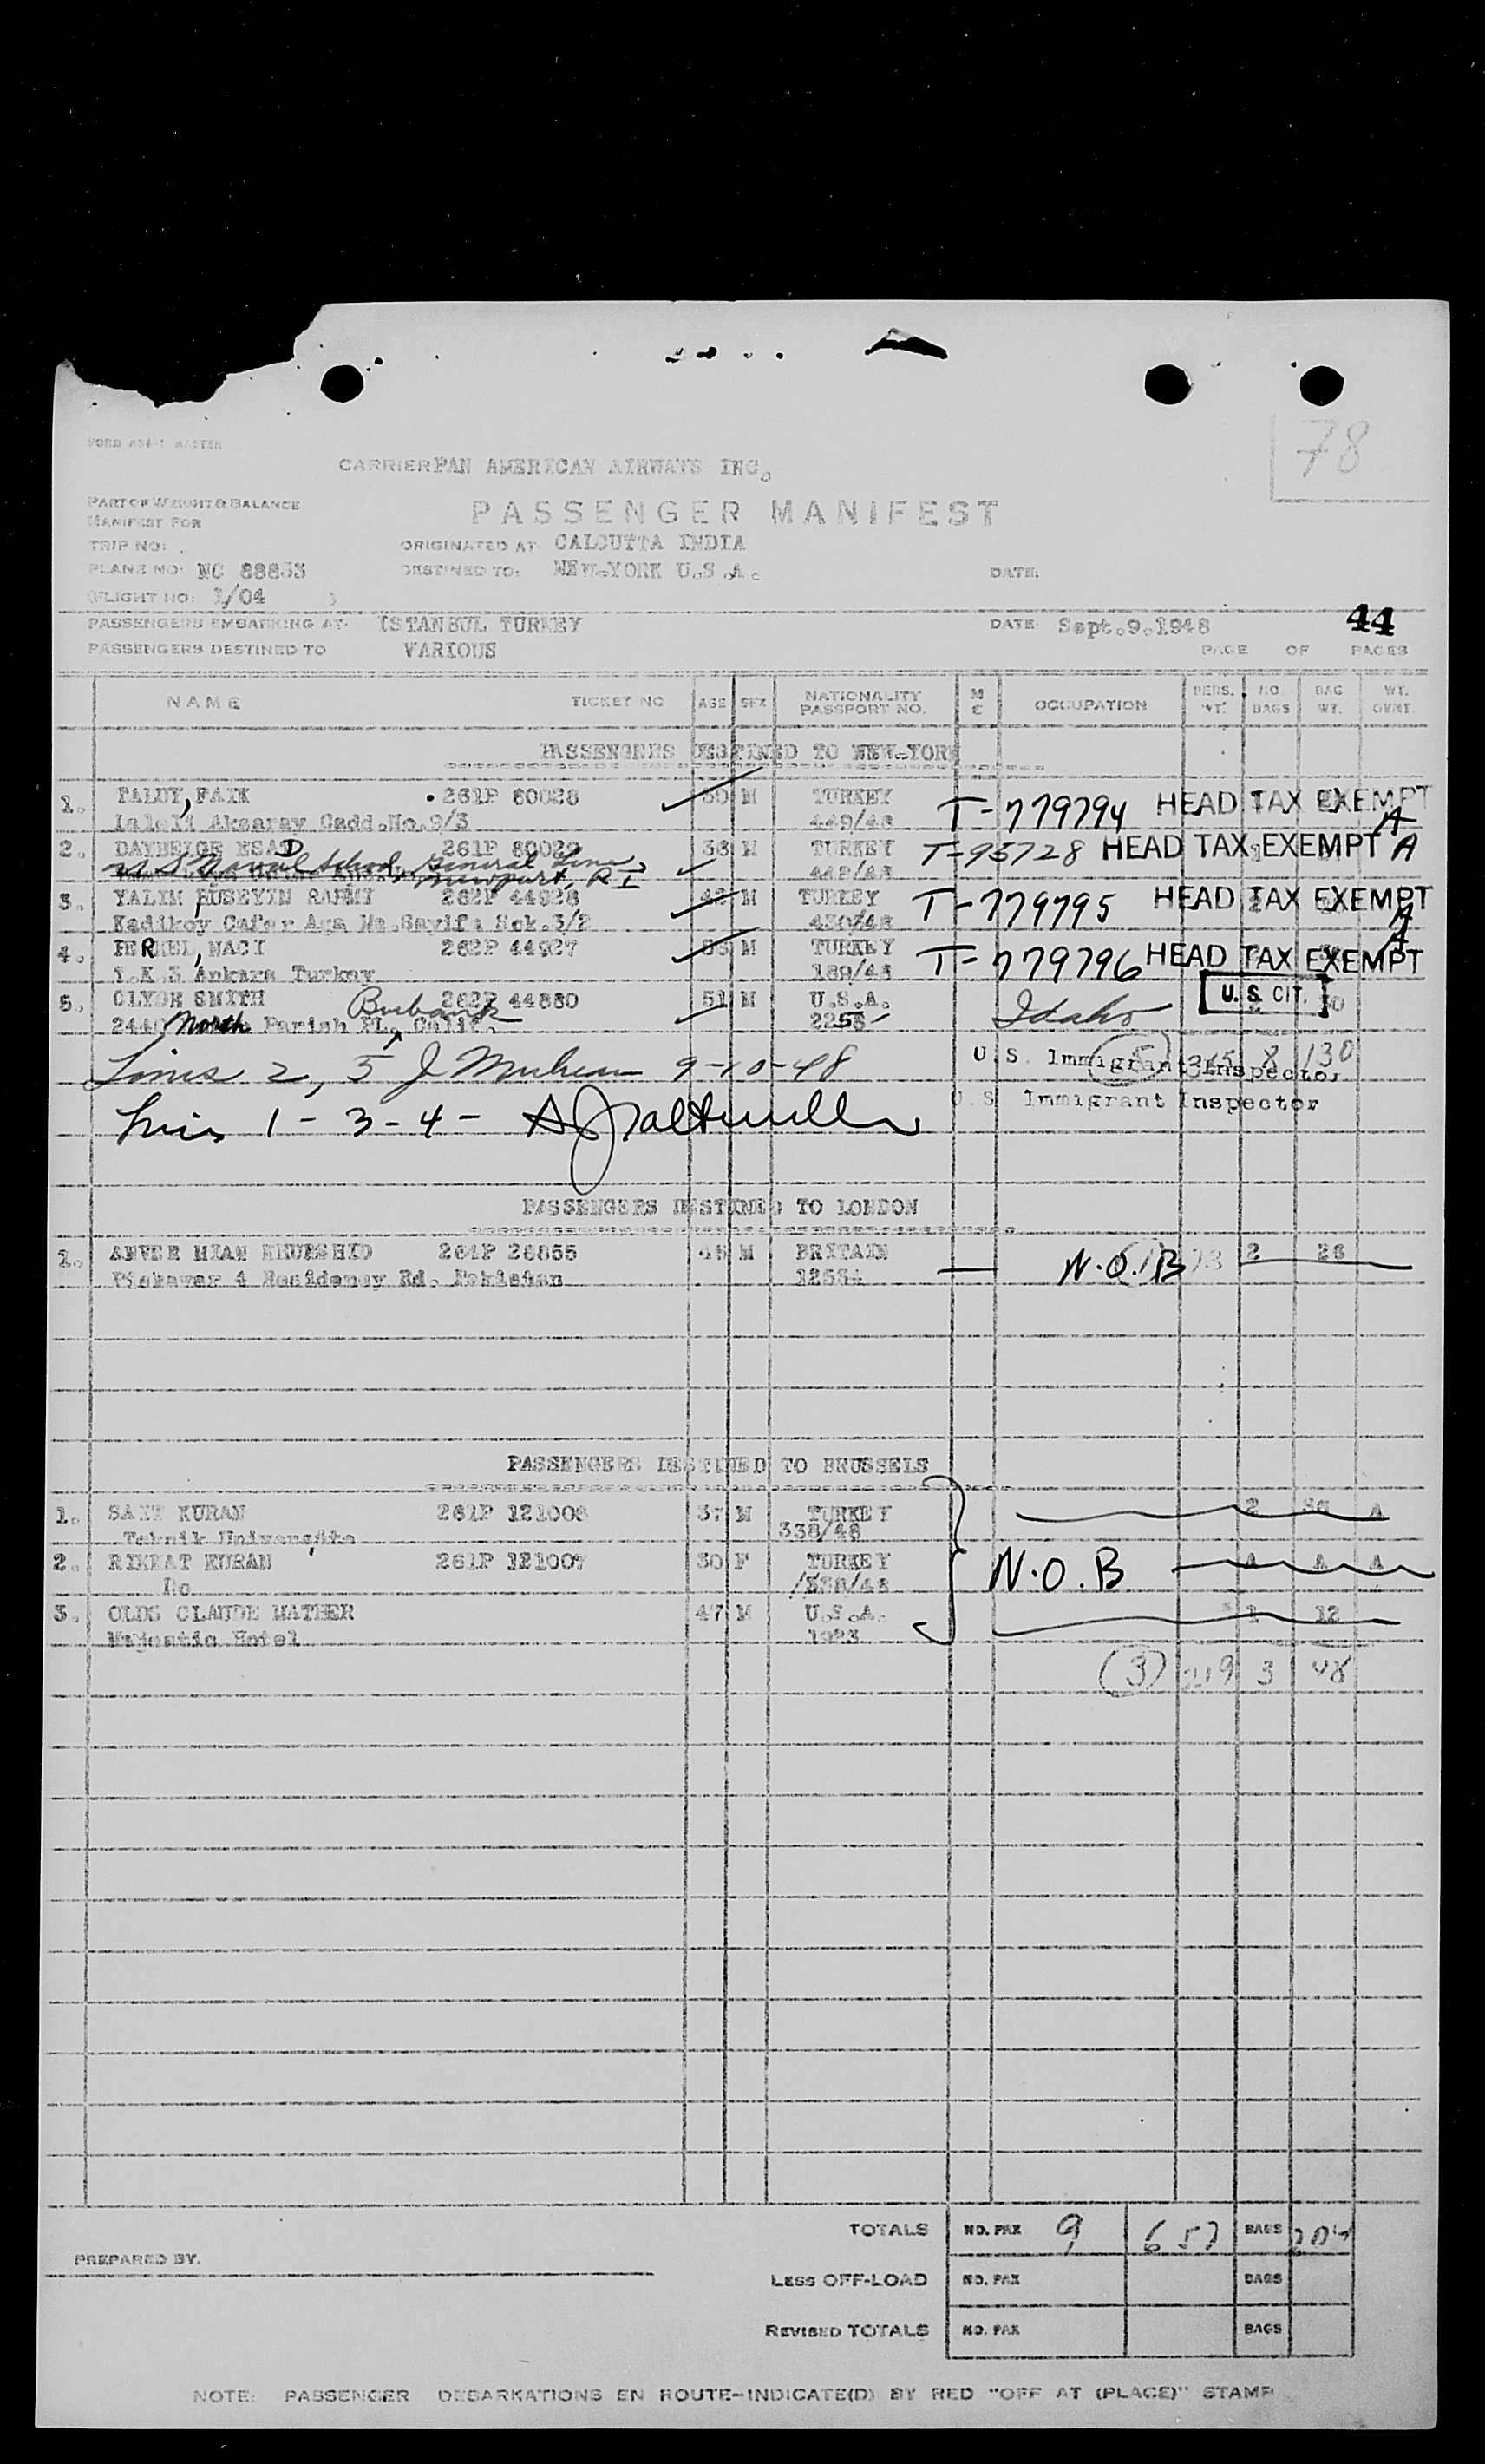 FORM
78
CARRIER PAN AMERICAN AIRWAYS INC.
PART OF WEIGHT & BALANCE
MANIFEST FOR
PASSENGER MANIFEST
TRIP NO:
ORIGINATED AT CALCUTTA INDIA
PLANE NO: NC 88833
DESTINED TO: NEW-YORK U.S.A.
DATE:
(FLIGHT NO: 1/04 )
PASSENGERS EMBARKING AT: ISTANBUL TURKEY
DATE Sept.9.1948
44
PASSENGERS DESTINED TO VARIOUS
PAGE OF PAGES
NAME TICKET NO AGE SEX NATIONALITY PASSPORT NO. M C OCCUPATION PERS. WT. NO. BAGS BAG WT. WT. OVWT.
PASSENGERS DESTINED TO NEW-YORK
1. FAIK 261P 80028 M TURKEY T-779794 HEAD TAX EXEMPT
Laleli Aksaray Cadd.No.9/3 449/48 A
2. DAYBELGE ESAD 261P 80029 36 M TURKEY T-95728 HEAD TAX EXEMPT A
U S Naval School, General Line,
Newport, R I
3. YALIM HUSEYIN RAHMI 262P 44926 42 M TURKEY T-779795 HEAD TAX EXEMPT
Kadikoy Cafer Aga Sok.3/2 430/48 A
4. PERKEL, NACI 262P 44927 M TURKEY T-779796 HEAD TAX EXEMPT
Ankara Turkey 189/48 A
5. CLYDE SMITH 262P 44880 51 M U.S.A. Idaho U. S. CIT. 30
2440 North Parish Pl, Burbank Calif. 2258
Lines 2, 5 J 9-10-48 U.S. Immigrant Inspector (5) 8 130
Lines 1 - 3 - 4 - U.S. Immigrant Inspector
PASSENGERS DESTINED TO LONDON
1. ANVER MIAN KHURSHID 264P 26855 M BRITAIN N.O.B 2 26
4 Residency Rd. Pakistan
PASSENGERS DESTINED TO BRUSSELS
1. SAIT KURAN 261P 121006 37 M TURKEY 2 36 A
Teknik Universite 338/48
2. RIKKAT KURAN 261P 121007 30 F TURKEY N.O.B A A A
Do
3. OLDS CLAUDE MATHER 47 M U.S.A. 1 12
Majestic Hotel 1923
(3) 219 3 48
TOTALS NO. PAX 9 657 BAGS 204
PREPARED BY.
LESS OFF-LOAD NO. PAX BAGS
REVISED TOTALS NO. PAX BAGS
NOTE: PASSENGER DEBARKATIONS EN ROUTE-INDICATE(D) BY RED "OFF AT (PLACE)" STAMP